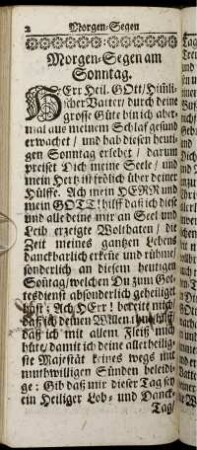 2 Morgen-Segen
Morgen-Segen am
Sonntag.
HErr Heil. GOtt/ Him̃li-
scher Vatter/ durch deine
grosse Güte bin ich aber-
mal aus meinem Schlaf gesund
erwachet/ und hab diesen heuti-
gen Sonntag erlebet/ darum
preiset Dich meine Seele/ und
mein Hertz ist frölich über deiner
Hülffe. Ach mein HERR und
mein GOTT! hilff daß ich diese
und alle deine mir an Seel und
Leib erzeigte Wolthaten/ die
Zeit meines gantzen Lebens
danckbarlich erkenne und rühme/
sonderlich an diesem heutigen
Sontag/ welchen Du zum Got-
tesdienst absonderlich geheiliget
hast: Ach HErr! bereite mich
daß ich deinen Willen thue/ hilff
daß ich mit allem Fleiß mich
hüte/ damit ich deine allerheilig-
ste Majestät keines wegs mit
muthwilligen Sünden beleidi-
ge: Gib daß mir dieser Tag sey
ein Heiliger Lob- und Danck-
Tag/